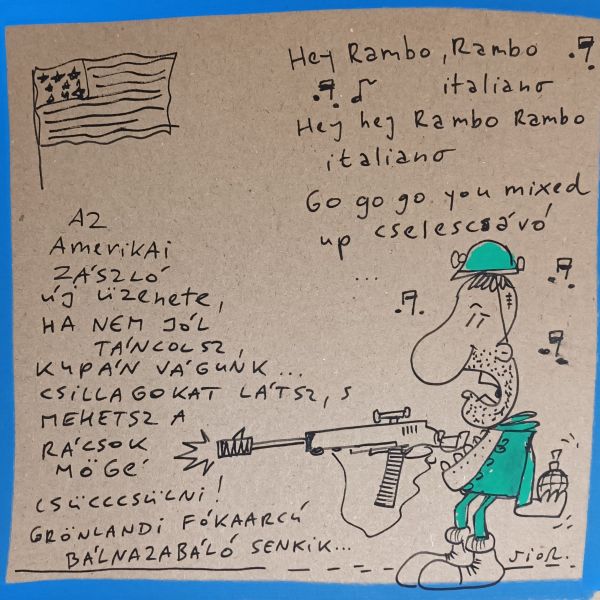 Hey Rambo, Rambo
italiano
Hey hey Rambo Rambo
italiano
Go go go you mixed
up cselescsávó
...
AZ
AmeriKAi
ZÁSZLÓ
új üzenete,
HA NEM JÓL
TÁNCOLSZ,
KUPÁN VÁGUNK...
CSILLAGOKAT LÁTSZ, S
MEHETSZ A
RÁCSOK
MÖGÉ
CSÜCCCSÜLNI!
GRÖNLANDI FÓKAARCÚ
BÁLNAZABÁLÓ SENKIK...
SiőR.